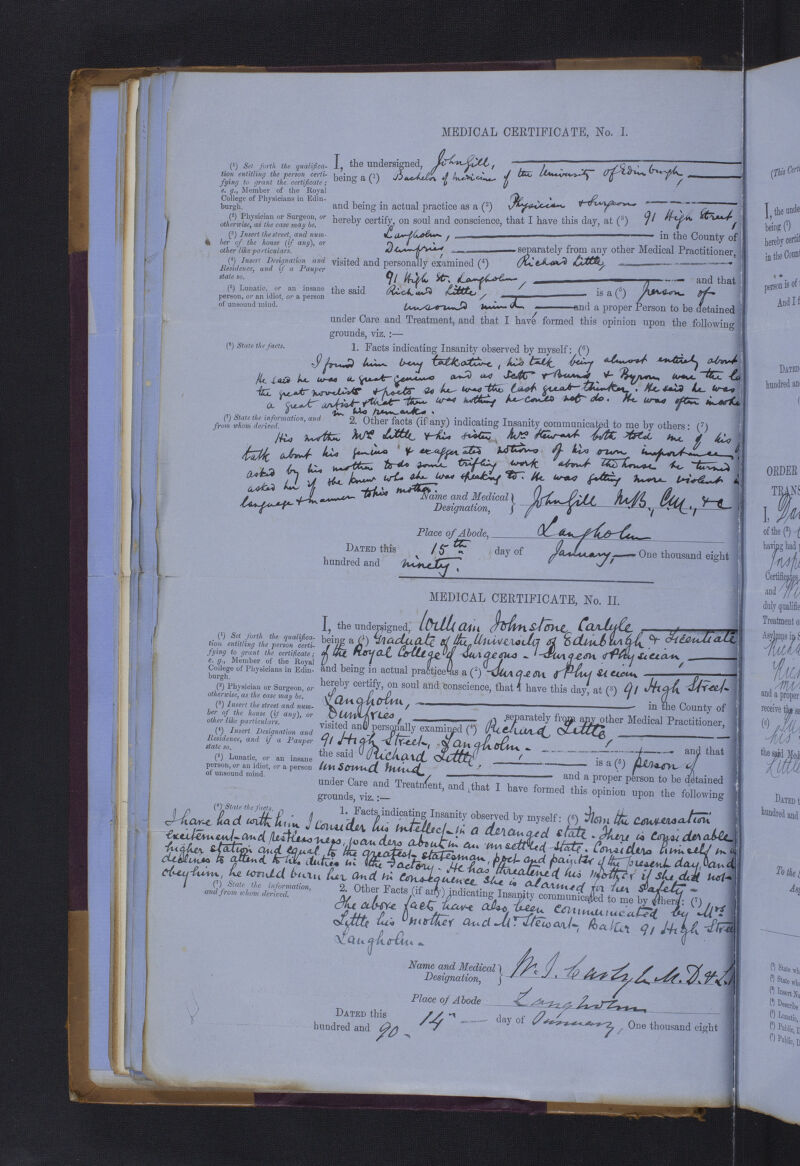 MEDICAL CERTIFICATE, No. I.
(¹) Set forth the qualifica-
tion entitling the person certi-
fying to grant the certificate;
e. g., Member of the Royal
College of Physicians in Edin-
burgh.
(²) Physician or Surgeon, or
otherwise, as the case may be.
(³) Insert the street, and num-
ber of the house (if any), or
other like particulars.
(⁴) Insert Designation and
Residence, and if a Pauper
state so.
(⁵) Lunatic, or an insane
person, or an idiot, or a person
of unsound mind.
I, the undersigned, John Gill,
being a (¹) Bachelor of Medicine of the University of Edinburgh,
and being in actual practice as a (²) Physician & Surgeon
hereby certify, on soul and conscience, that I have this day, at (³) 91 High Street,
Langholm, in the County of
Dumfries, separately from any other Medical Practitioner,
visited and personally examined (⁴) Richard Little,
91 High St. Langholm, and that
the said Richard Little, is a (⁵) person of
unsound mind, and a proper Person to be detained
under Care and Treatment, and that I have formed this opinion upon the following
grounds, viz. :—
(⁶) State the facts.
1. Facts indicating Insanity observed by myself: (⁶)
I found him very talkative, his talk being almost entirely about
He said he was a great genius and as Scott & Burns & Byron were the
the great novelists & poets so he was the last great thinker. He said he was
a great artist & that there was nothing he could not do. He was often
in his remarks.
(⁷) State the information, and
from whom derived.
2. Other facts (if any) indicating Insanity communicated to me by others: (⁷)
His mother Mrs Little & his sister Mrs Stewart both told me of his
talk about his genius & exaggerated notions of his own importance
asked by his mother to do some trifling work about the house he turned
asked her if she knew who she was speaking to. He was getting more violent
language & manner to his mother.
Name and Medical
Designation,
John Gill M.B., C.M., &c
Place of Abode, Langholm
DATED this 15th day of January, One thousand eight
hundred and ninety.
MEDICAL CERTIFICATE, No. II.
(¹) Set forth the qualifica-
tion entitling the person certi-
fying to grant the certificate;
e. g., Member of the Royal
College of Physicians in Edin-
burgh.
(²) Physician or Surgeon, or
otherwise, as the case may be.
(³) Insert the street, and num-
ber of the house (if any), or
other like particulars.
(⁴) Insert Designation and
Residence, and if a Pauper
state so.
(⁵) Lunatic, or an insane
person, or an idiot, or a person
of unsound mind.
I, the undersigned, William Johnstone Carlyle
being a (¹) Graduate of the University of Edinburgh & Licentiate
of the Royal College of Surgeons - Surgeon & Physician,
and being in actual practice as a (²) Surgeon & Physician
hereby certify, on soul and conscience, that I have this day, at (³) 91 High Street
Langholm, in the County of
Dumfries, separately from any other Medical Practitioner,
visited and personally examined (⁴) Richard Little,
91 High Street, Langholm - and that
the said Richard Little, is a (⁵) person of
unsound mind, and a proper person to be detained
under Care and Treatment, and that I have formed this opinion upon the following
grounds, viz. :—
(⁶) State the facts.
1. Facts indicating Insanity observed by myself: (⁶) From the conversation
I have had with him I consider his intellect in a deranged state - There is considerable
excitement and restlessness, wanders about in an unsettled state. Considers himself in a
higher station and equal to the greatest statesman, poet and painter of the present day and
declines to attend to his duties in the Factory. He has threatened his mother if she did not
obey him, he would burn her and in consequence she is alarmed for her safety -
(⁷) State the information,
and from whom derived.
2. Other Facts (if any) indicating Insanity communicated to me by others: (⁷)
The above facts have also been communicated by Mrs
Little his mother and Mr Stewart, Baker 91 High Street
Langholm -
Name and Medical
Designation,
W. J. Carlyle M.D. & L.
Place of Abode Langholm
DATED this 14th day of January, One thousand eight
hundred and 90 -
I, the unde
being (¹)
hereby certif
in the Coun
person is of
And I f
DATED
hundred an
ORDER
TRANS
of the (²)
having had
Certificates
and
duly qualifie
Treatment o
Asylums in
and a proper
receive the sa
the said Med
Little
DATED t
hundred and
To the